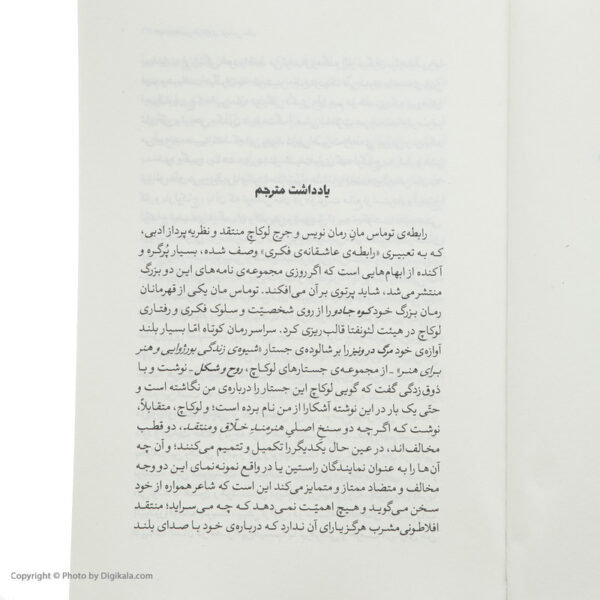 یادداشت مترجم
رابطه‌ی توماس مانِ رمان نویس و جرج لوکاچِ منتقد و نظریه پرداز ادبی،
که به تعبیری «رابطه‌ی عاشقانه‌ی فکری» وصف شده، بسیار پُرگره و
آکنده از ابهام‌هایی است که اگر روزی مجموعه‌ی نامه‌های این دو بزرگ
منتشر می‌شد، شاید پرتوی بر آن می‌افکند. توماس مان یکی از قهرمانان
رمان بزرگ خود کوه جادو را از روی شخصیّت و سلوک فکری و رفتاری
لوکاچ در هیئت لئونفتا قالب‌ریزی کرد. سراسر رمان کوتاه امّا بسیار بلند
آوازه‌ی خود مرگ در ونیز را بر شالوده‌ی جستار «شیوه‌ی زندگی بورژوایی و هنر
برای هنر» ـ از مجموعه‌ی جستارهای لوکاچ، روح و شکل ـ نوشت و با
ذوق‌زدگی گفت که گویی لوکاچ این جستار را درباره‌ی من نگاشته است و
حتّی یک بار در این نوشته آشکارا از من نام برده است؛ و لوکاچ، متقابلاً،
نوشت که اگر چه دو سنخ اصلیِ هنرمندِ خلّاق و منتقد، دو قطب
مخالف‌اند، در عین حال یکدیگر را تکمیل و تتمیم می‌کنند؛ و آن چه
آن‌ها را به عنوان نمایندگان راستین یا در واقع نمونه‌نمای این دو وجه
مخالف و متضاد ممتاز و متمایز می‌کند این است که شاعر همواره از خود
سخن می‌گوید و هیچ اهمیّت نمی‌دهد که چه می‌سراید؛ منتقد
افلاطونی مشرب هرگز یارای آن ندارد که درباره‌ی خود با صدای بلند
Copyright © Photo by Digikala.com